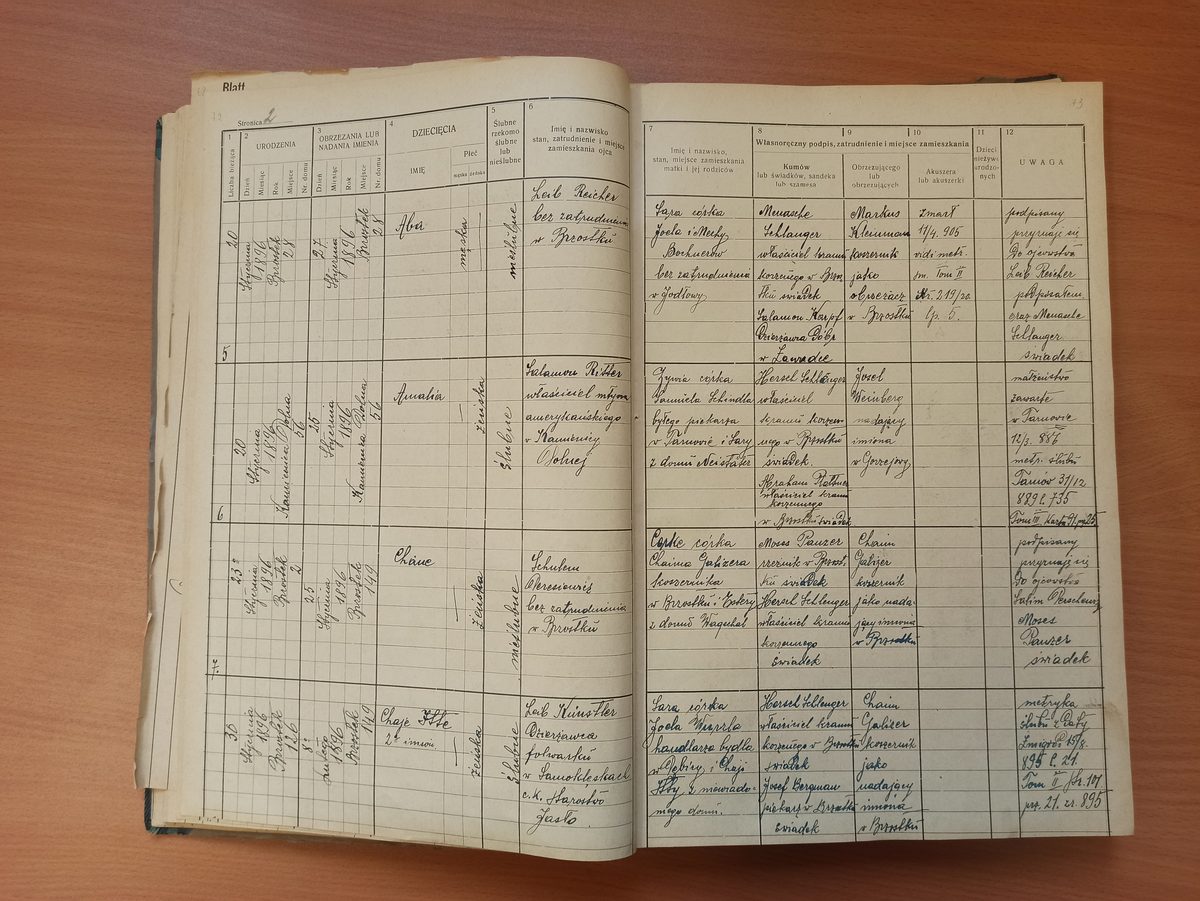 Blatt
Stronica 2
73
1
2
3
4
5
6
7
8
9
10
11
12
Liczba bieżąca
URODZENIA
OBRZEZANIA LUB
NADANIA IMIENIA
DZIECIĘCIA
Ślubne
rzekomo
ślubne
lub
nieślubne
Imię i nazwisko
stan, zatrudnienie i miejsce
zamieszkania ojca
Imię i nazwisko,
stan, miejsce zamieszkania
matki i jej rodziców
Własnoręczny podpis, zatrudnienie i miejsce zamieszkania
Kumów
lub świadków, sandeka
lub szamesa
Obrzezującego
lub
obrzezujących
Akuszera
lub akuszerki
Dzieci
nieżywo
urodzo-
nych
UWAGA
Dzień
Miesiąc
Rok
Miejsce
Nr. domu
Dzień
Miesiąc
Rok
Miejsce
Nr. domu
IMIĘ
Płeć
męska
żeńska
5
20
Stycznia
1896
Brzostek
28
27
Stycznia
1896
Brzostek
28
Aba
męska
nieślubne
Leib Reicher
bez zatrudnienia
w Brzostku
Sara córka
Joela i Nechy
Bochnerów
bez zatrudnienia
w Jodłowy
Menasche
Schlanger
właściciel kramu
korzennego w Brzo
stku świadek
Salamon Karpf
Dzierżawca Dóbr
w Zawadce
Markus
Kleinmann
koszernik
jako
obrzezacz
w Brzostku
zmarł
17/4. 905
vidi metr.
zm. Tom II
K. 219/20.
lp. 5.
podpisany
przyznaje się
Do ojcowstwa
Leib Reicher
podpisałem
oraz Menasche
Schlanger
świadek
6
20
Stycznia
1896
Kamienica Dolna
56
25
Stycznia
1896
Kamienica Dolna
56
Amalia
żeńska
ślubne
Salamon Ritter
właściciel młyna
amerykańskiego
w Kamienicy
Dolnej
Żywia córka
Samuela Schindla
byłego piekarza
w Tarnowie i Sary
z domu Neistäter
Hersel Schlänger
właściciel
kramu korzen
nego w Brzostku
świadek
Abraham
właściciel kramu
korzennego
w Brzostku świadek
Josel
Weinberg
nadający
imiona
w Gorzejowy
małżeństwo
zawarte
w Tarnowie
12/3. 887
metr. ślubu
Tarnów 31/12
889 l. 735
Tom III Karta 91. poz 25
7
23
Stycznia
1896
Brzostek
2
25
Stycznia
1896
Brzostek
149
Chane
żeńska
nieślubne
Schulem
bez zatrudnienia
w Brzostku
córka
Chaima Galizera
koszernika
w Brzostku i Estery
z domu Wagschal
Moses Panzer
rzeźnik w Brzost
ku świadek
Hersel Schlenger
właściciel kramu
korzennego
świadek
Chaim
Galizer
koszernik
jako nada-
jący imiona
w Brzostku
podpisany
przyznaje się
Do ojcowstwa
Moses
Panzer
świadek
30
Stycznia
1896
Brzostek
126
8
Lutego
1896
Brzostek
149
Chaje Itte
2 imion.
żeńska
ślubne
Leib Künstler
Dzierżawca
folwarku
w Samoklęskach
c.k. Starostwo
Jasło.
Sara córka
Joela
handlarza bydła
w Dębicy i Chaji
Itty z niewiado-
mego domu.
Hersel Schlenger
właściciel kramu
korzennego w Brzostku
świadek
Josef Bergman
piekarz w Brzostku
świadek
Chaim
Galizer
koszernik
jako
nadający
imiona
w Brzostku
metryka
ślubu z Daty
Żmigród 19/8.
895 l. 21.
Tom II Str. 101
prz. 21. zr. 895